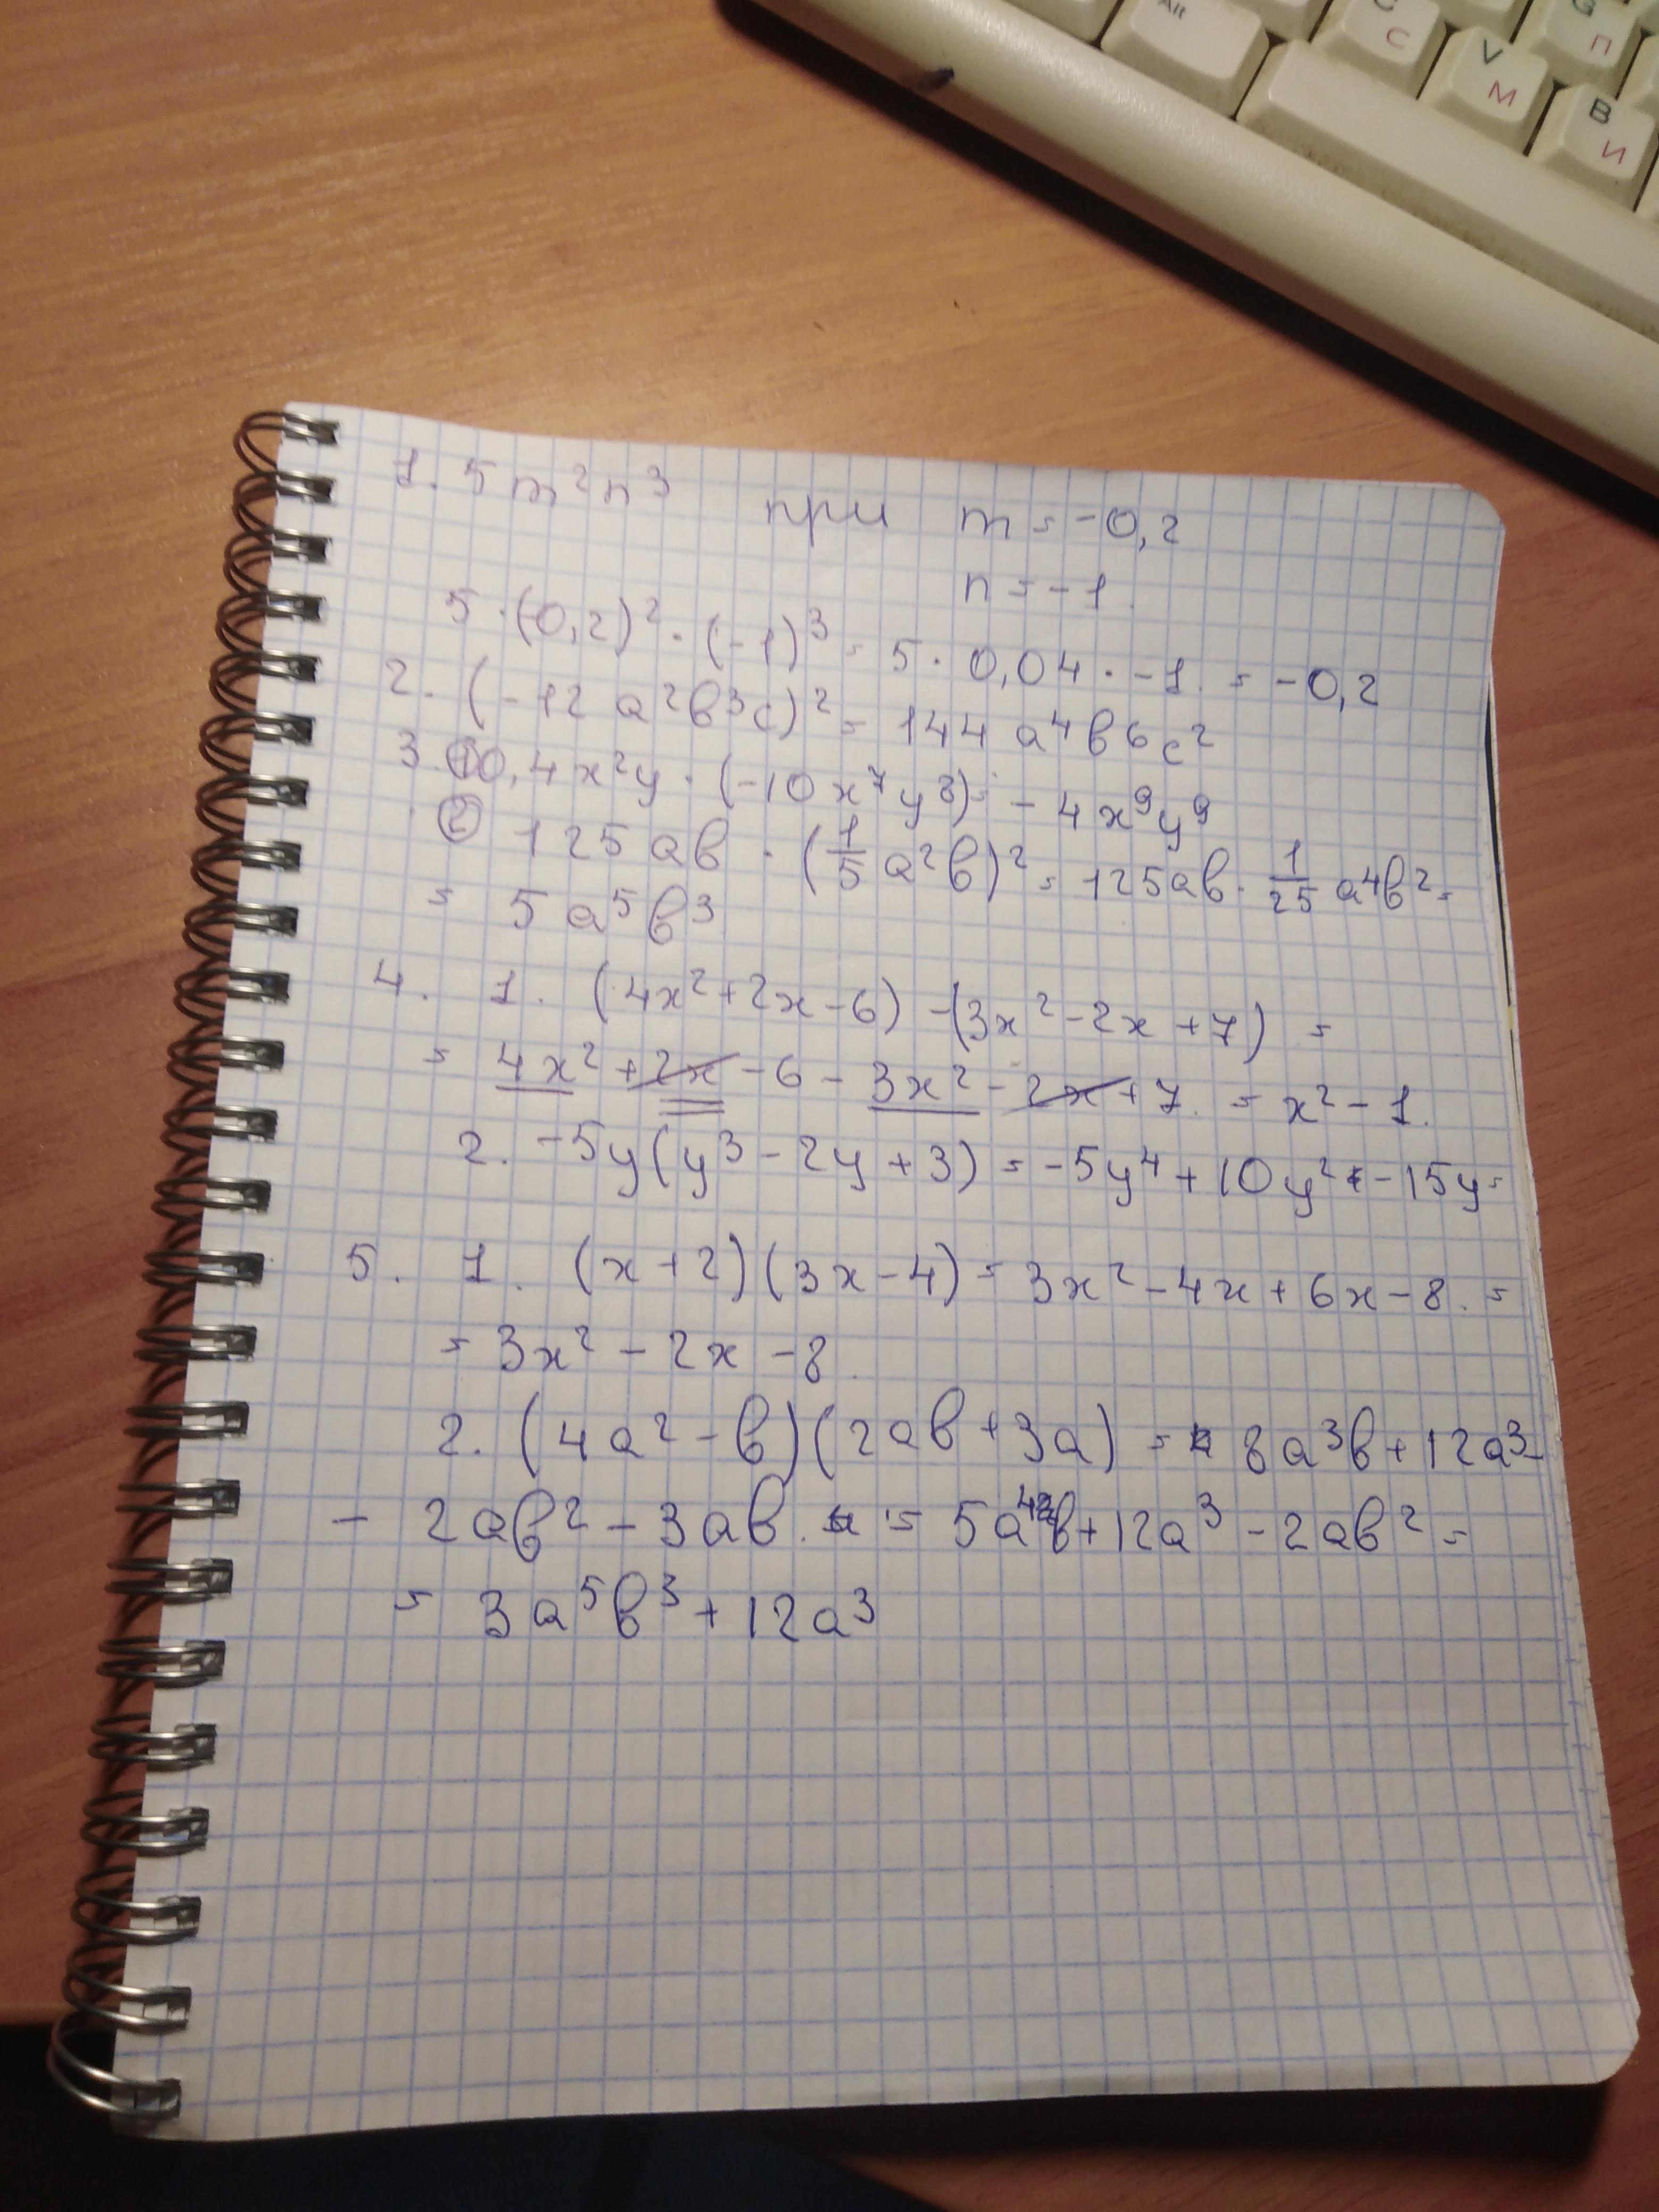 Alt
C С
V М
G П
B И
1. 5m²n³ при m = -0,2
n = -1.
5·(0,2)²·(-1)³ = 5·0,04·-1. = -0,2
2. (-12a²b³c)² = 144a⁴b⁶c²
3. ① 0,4x²y·(-10x⁷y⁸) = -4x⁹y⁹
② 125ab·(1/5 a²b)² = 125ab·1/25 a⁴b² =
= 5a⁵b³
4. 1. (4x²+2x-6)-(3x²-2x+7) =
= 4x²+2x-6-3x²-2x+7. = x²-1.
2. -5y(y³-2y+3) = -5y⁴+10y²-15y=
5. 1. (x+2)(3x-4) = 3x²-4x+6x-8. =
= 3x²-2x-8.
2. (4a²-b)(2ab+3a) = 8a³b+12a³-
- 2ab²-3ab. = 5a b+12a³-2ab² =
= 3a⁵b³+12a³